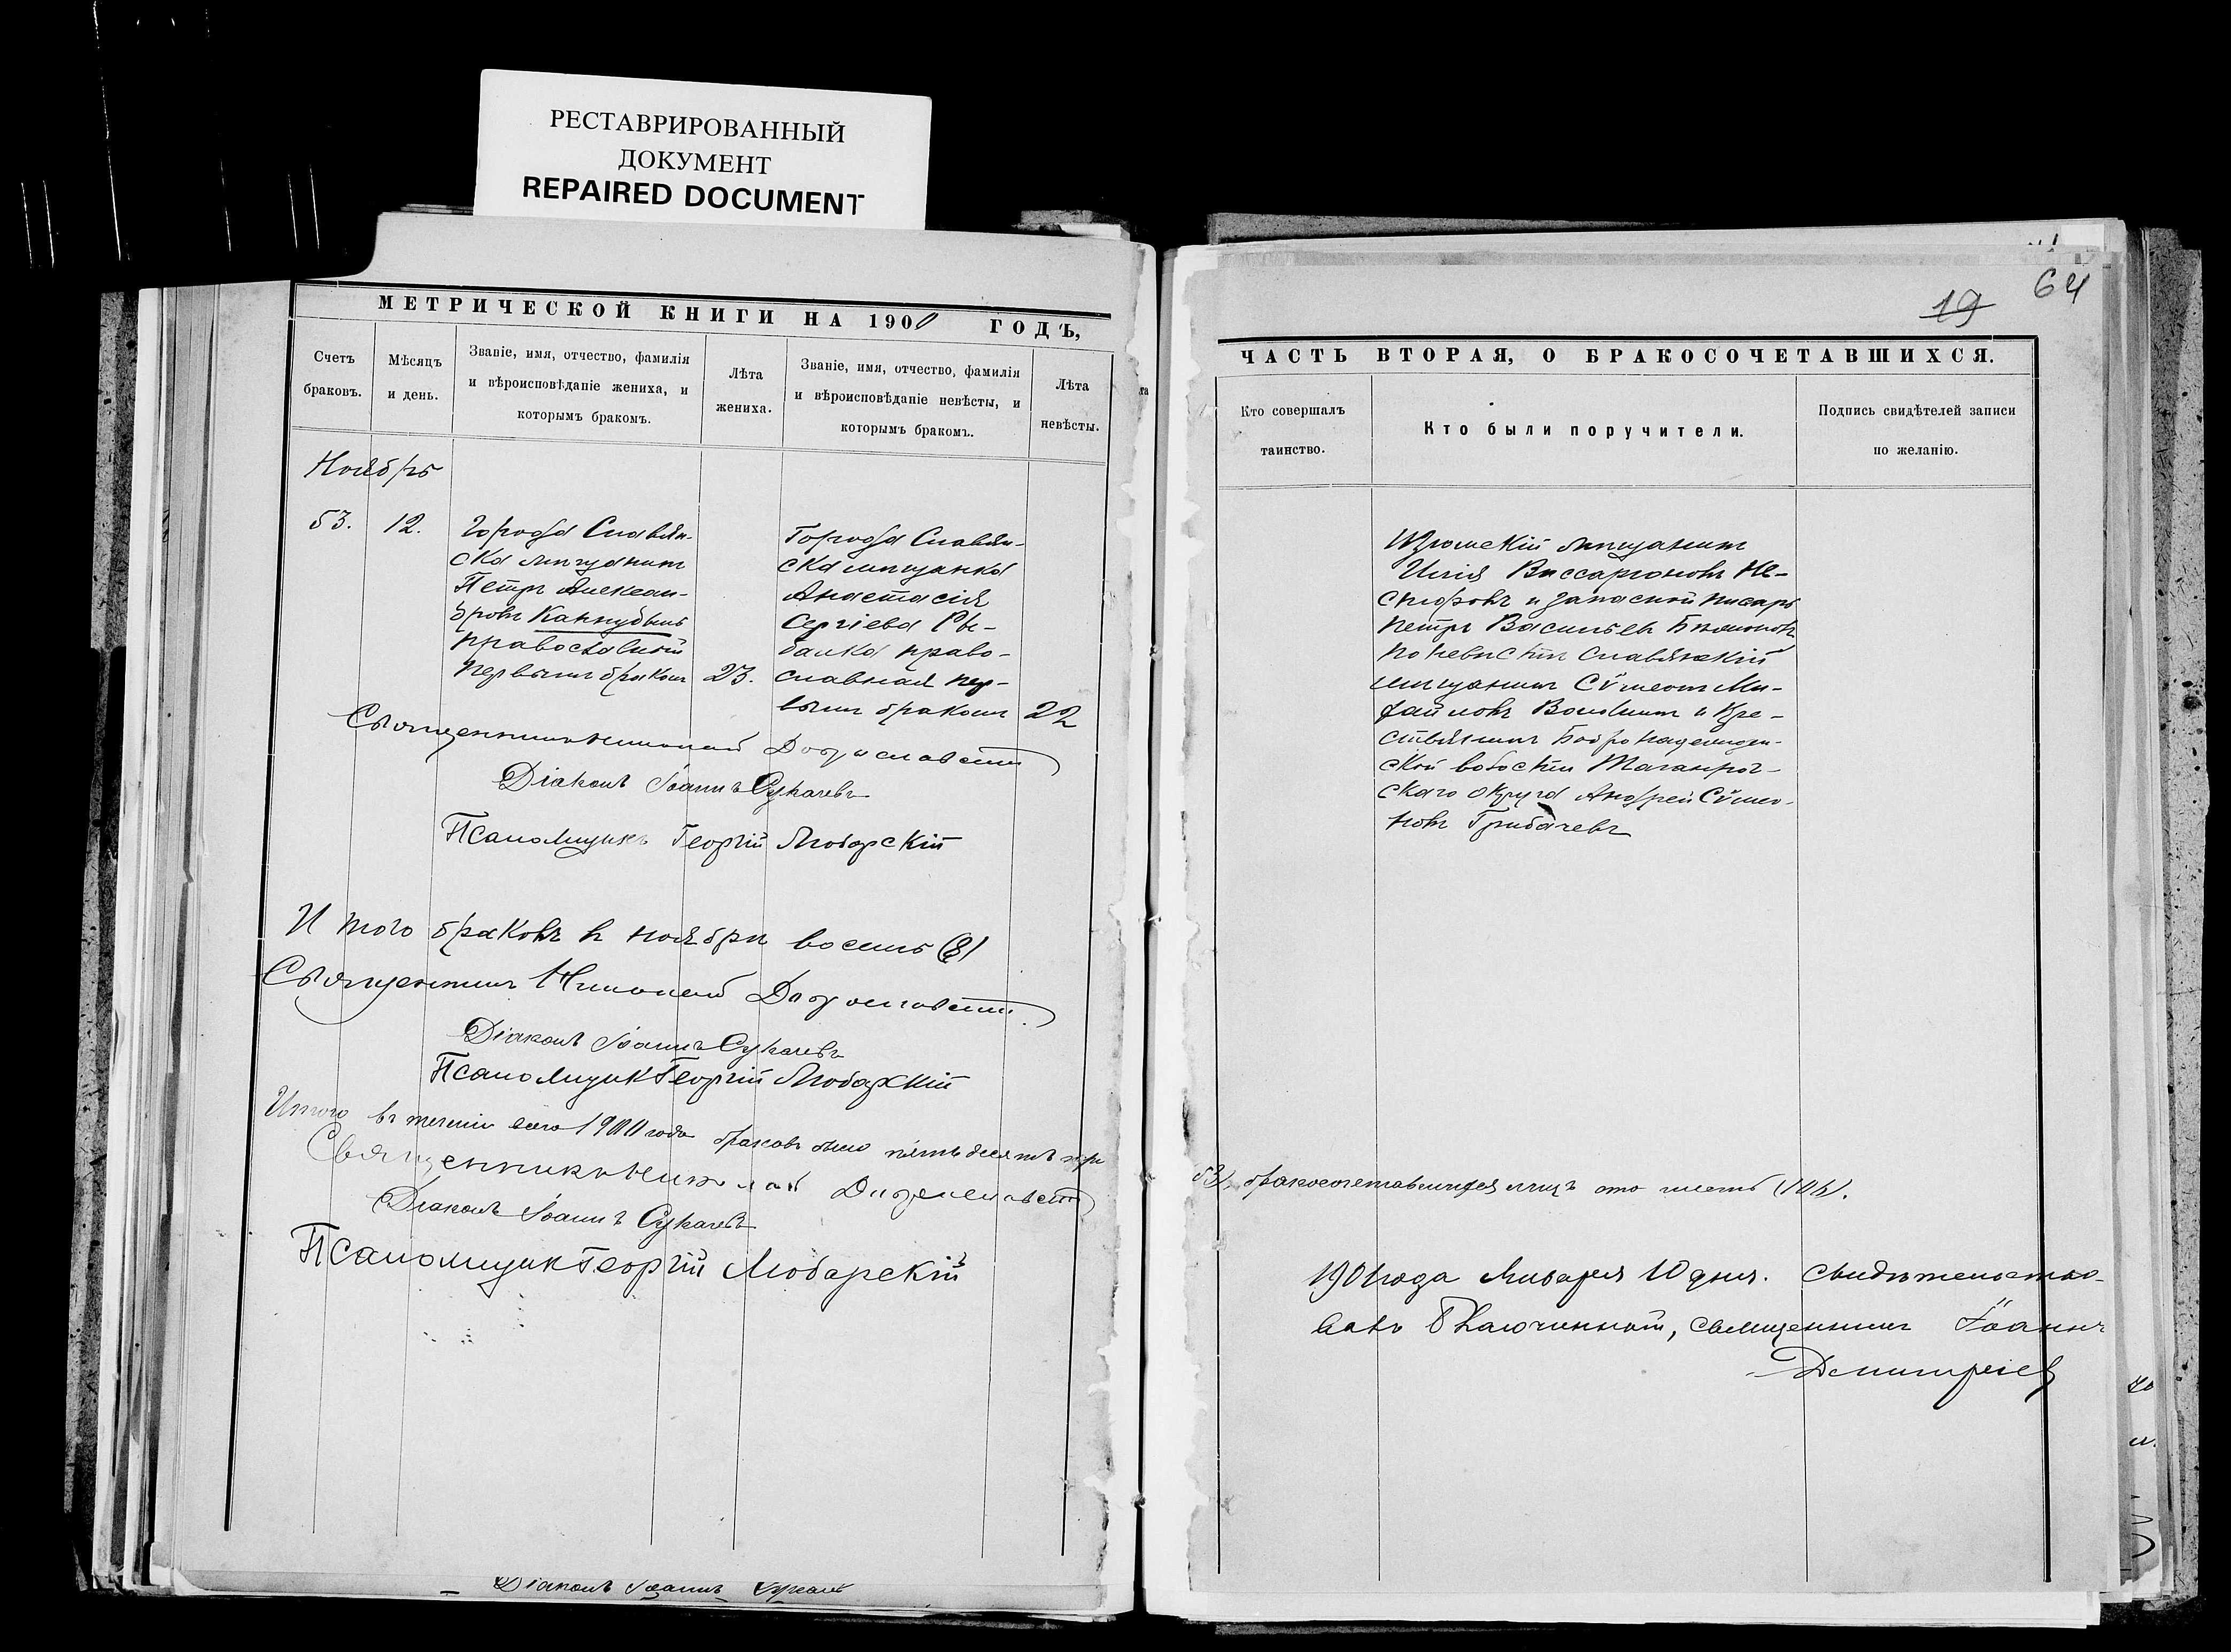 РЕСТАВРИРОВАННЫЙ
ДОКУМЕНТ
REPAIRED DOCUMENT
МЕТРИЧЕСКОЙ КНИГИ НА 1900 ГОДЪ,
Счетъ
браковъ.
Мѣсяцъ
и день.
Званіе, имя, отчество, фамилія
и вѣроисповѣданіе жениха, и
которымъ бракомъ.
Лѣта
жениха.
Званіе, имя, отчество, фамилія
и вѣроисповѣданіе невѣсты, и
которымъ бракомъ.
Лѣта
невѣсты.
Ноябрь
53.
12.
Города Славян-
ска мѣщанинъ
Петръ Алексан-
дровъ
православный
первымъ бракомъ
23.
Города Славян-
ска мѣщанка
Анастасія
Сергіева Ры-
балка право-
славная пер-
вымъ бракомъ
22
Священникъ Николай
Діаконъ Іоаннъ Сукачевъ
Псаломщикъ Георгій Любарскій
Итого браковъ въ ноябрѣ восемь (8)
Священникъ Николай
Діаконъ Іоаннъ Сукачевъ
Псаломщик Георгій Любарскій
Итого въ теченіи всего 1900 года браковъ было пятьдесятъ три
Священникъ Николай
Діаконъ Іоаннъ Сукачевъ
Псаломщик Георгій Любарскій
Діаконъ Іоаннъ
19
64
ЧАСТЬ ВТОРАЯ, О БРАКОСОЧЕТАВШИХСЯ.
Кто совершалъ
таинство.
Кто были поручители.
Подпись свидѣтелей записи
по желанію.
Изюмскій мѣщанинъ
Илія Виссаріоновъ Не-
и запасной писарь
Петръ Васильевъ
по невѣстѣ Славянскій
мѣщанинъ Сѵмеонъ Ми-
хайловъ и кре-
стьянинъ
ской волости Таганрог-
скаго округа Андрей Сѵмео-
новъ Грибачевъ
53), бракосочетавшихся лицъ сто шесть (106).
1901 года Января 10 дня. Свидѣтельство-
валъ Благочинный, священникъ Іоаннъ
Димитріев